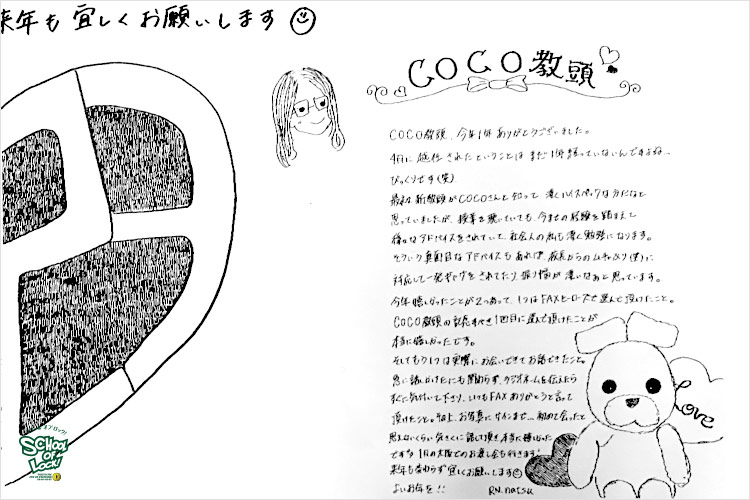 来年も宜しくお願いします
COCO教頭
COCO教頭、今年1年ありがとうございました。
4月に就任されたということはまだ1年経っていないんですよね…
びっくりです(笑)
最初、新教頭がCOCOさんと知って、凄くハイスペックな方だなと
思っていましたが、授業を聴いていても、今までの経験を踏まえて
様々なアドバイスをされていて、社会人の私も凄く勉強になります。
そういう真面目なアドバイスもあれば、校長からのムチャぶり(笑)に
対応して一発ギャグをされてたり、振り幅が凄いなあと思っています。
今年嬉しかったことが2つあって、1つはFAXヒーローズで選んで頂けたこと。
COCO教頭の記念すべき1回目に選んで頂けたことが
本当に嬉しかったです。
そしてもう1つは実際にお会いできてお話できたこと。
急に話しかけたにも関わらず、ラジオネームを伝えたら
すぐに気付いて下さり、いつもFAXありがとうと言って
頂けたこと。その上、お写真にサインまで…初めて会ったと
思えないくらい気さくに話して頂き、本当に嬉しかった
ですな 1月の大阪でのお渡し会も行きます!
来年も変わらず宜しくお願いします
よいお年を!!
RN.natsu
Love
SCHOOL
OF
LOCK!